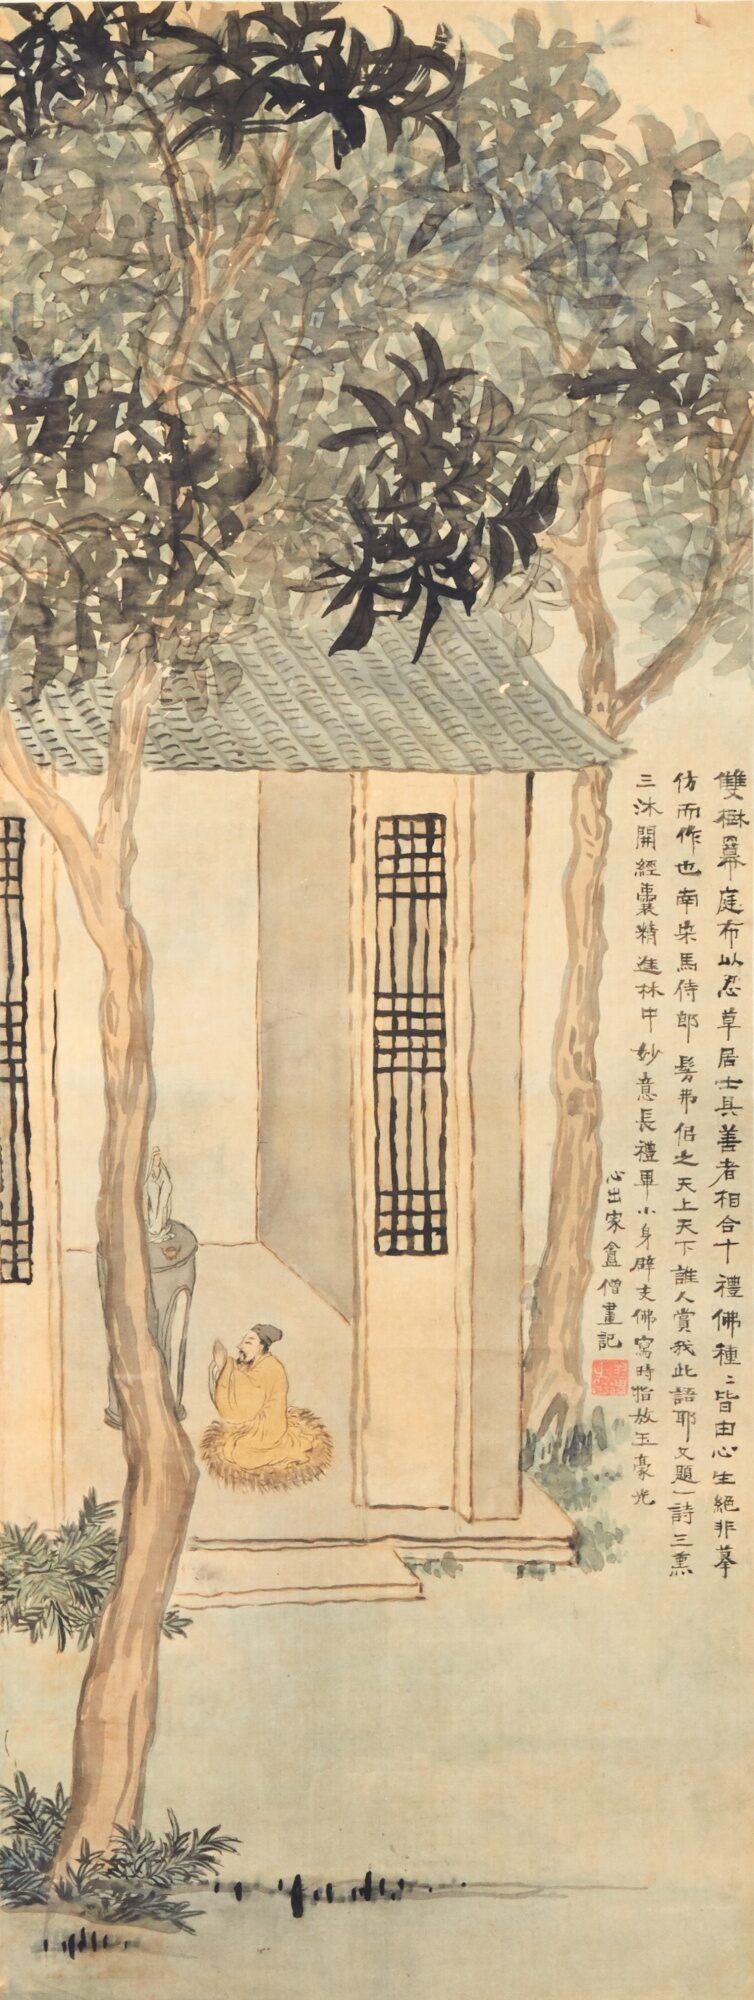 雙樹幕庭布以忍草居士具善者相合十禮佛種〻皆由心生絕非摹
仿而作也南宋馬侍郎髣弗侶之天上天下誰人賞我此語耶又題一詩三熏
三沐開經囊精進林中妙意長禮畢小身辟支佛寫時指放玉豪光
心出家盦僧畫記